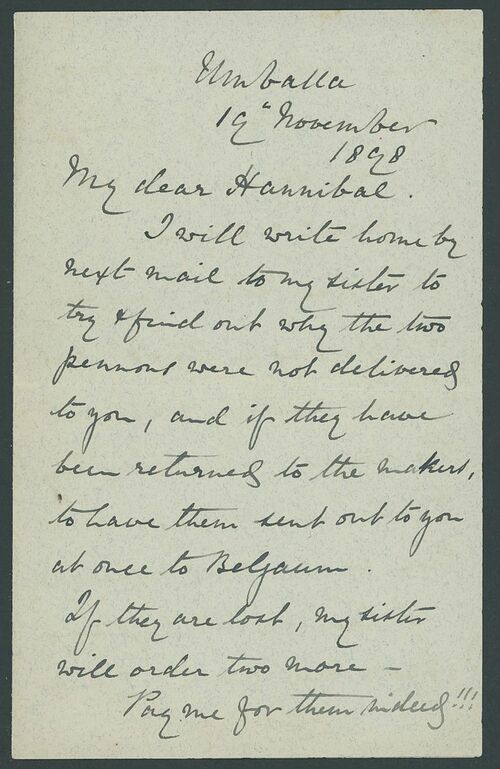 Umballa
19th November
1898
My dear Hannibal.
I will write home by
next mail to my sister to
try & find out why the two
pennons were not delivered
to you, and if they have
been returned to the makers,
to have them sent out to you
at once to Belgaum.
If they are lost, my sister
will order two more –
Pay me for them indeed!!!